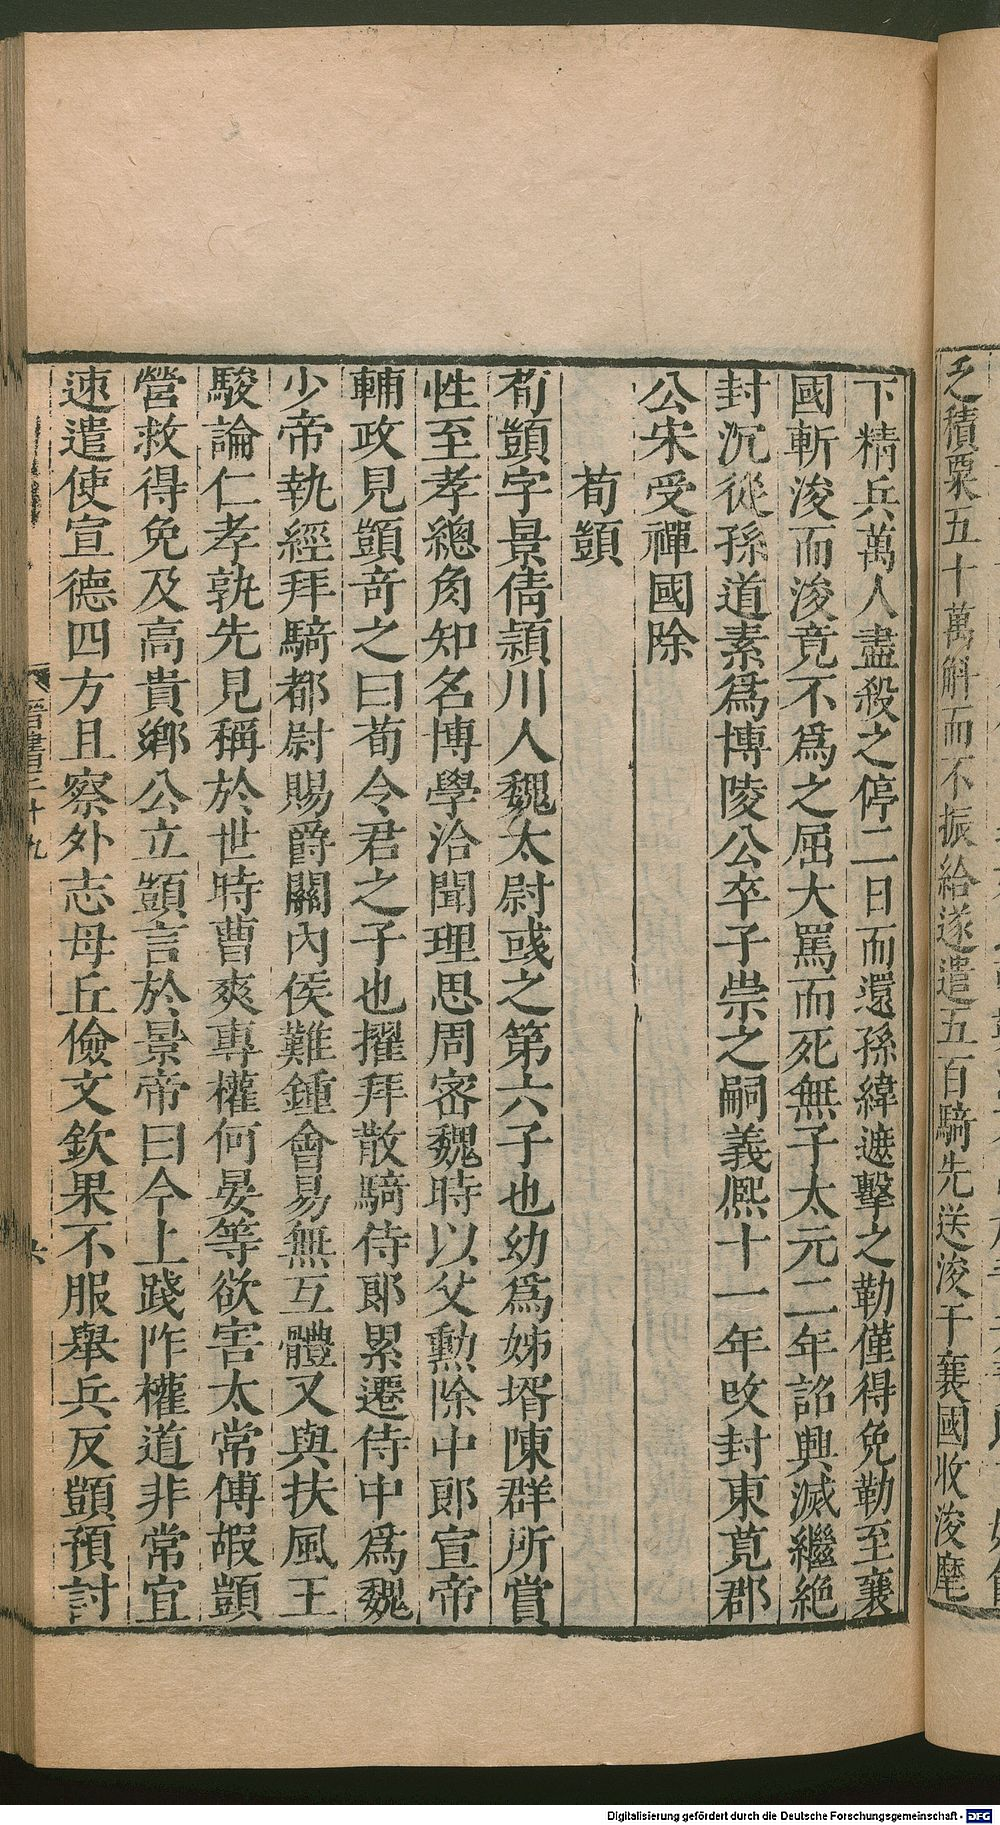 乏積粟五十萬斛而不振給遂遣五百騎先送浚于襄國收浚麾
下精兵萬人盡殺之停二日而還孫緯遮擊之勒僅得免勒至襄
國斬浚而浚竟不爲之屈大罵而死無子太元二年詔興滅繼絶
封沉從孫道素爲博陵公卒子崇之嗣義熙十一年改封東莞郡
公宋受禪國除
荀顗
荀顗字景倩潁川人魏太尉彧之第六子也幼爲姊壻陳群所賞
性至孝總角知名博學洽聞理思周密魏時以父勳除中郎宣帝
輔政見顗竒之曰荀令君之子也擢拜散騎侍郎累遷侍中爲魏
少帝執經拜騎都尉賜爵關內侯難鍾會易無互體又與扶風王
駿論仁孝孰先見稱於世時曹爽專權何晏等欲害太常傅嘏顗
營救得免及高貴鄉公立顗言於景帝曰今上踐阼權道非常宜
速遣使宣德四方且察外志毋丘儉文欽果不服舉兵反顗預討
晉書三十九
六
Digitalisierung gefördert durch die Deutsche Forschungsgemeinschaft - DFG